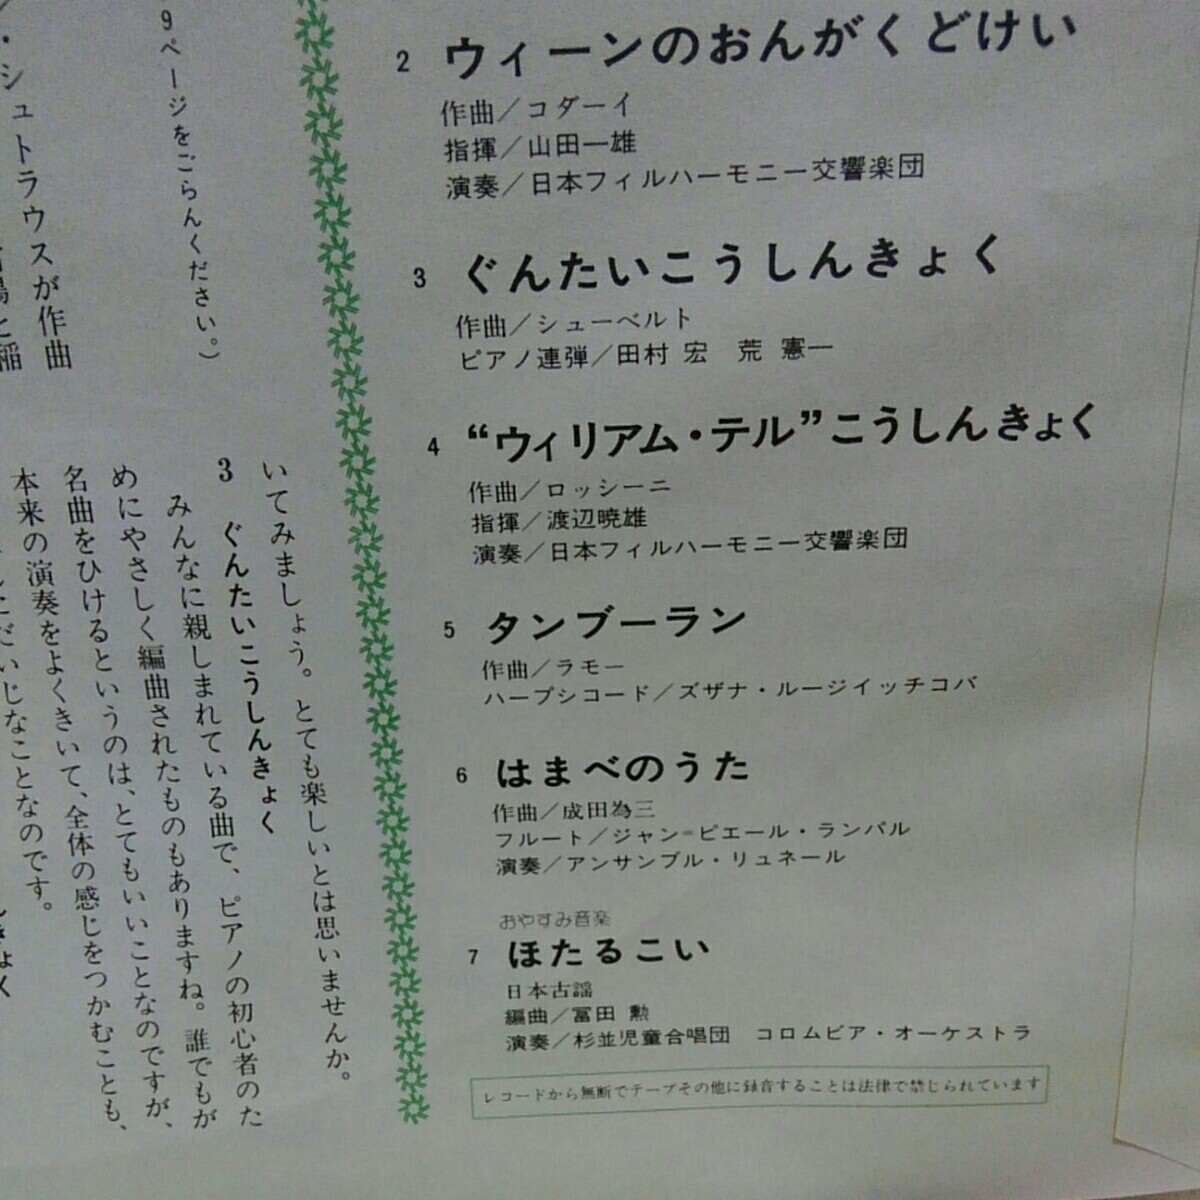 2 ウィーンのおんがくどけい
作曲／コダーイ
指揮／山田一雄
演奏／日本フィルハーモニー交響楽団
3 ぐんたいこうしんきょく
作曲／シューベルト
ピアノ連弾／田村 宏 荒 憲一
4 “ウィリアム・テル”こうしんきょく
作曲／ロッシーニ
指揮／渡辺暁雄
演奏／日本フィルハーモニー交響楽団
5 タンブーラン
作曲／ラモー
ハープシコード／ズザナ・ルージイッチコバ
6 はまべのうた
作曲／成田為三
フルート／ジャン=ピエール・ランパル
演奏／アンサンブル・リュネール
おやすみ音楽
7 ほたるこい
日本古謡
編曲／冨田 勲
演奏／杉並児童合唱団 コロムビア・オーケストラ
レコードから無断でテープその他に録音することは法律で禁じられています
9ページをごらんください。）
・シュトラウスが作曲
いてみましょう。とても楽しいとは思いませんか。
3 ぐんたいこうしんきょく
みんなに親しまれている曲で、ピアノの初心者のた
めにやさしく編曲されたものもありますね。誰でもが
名曲をひけるというのは、とてもいいことなのですが、
本来の演奏をよくきいて、全体の感じをつかむことも、
だいじなことなのです。